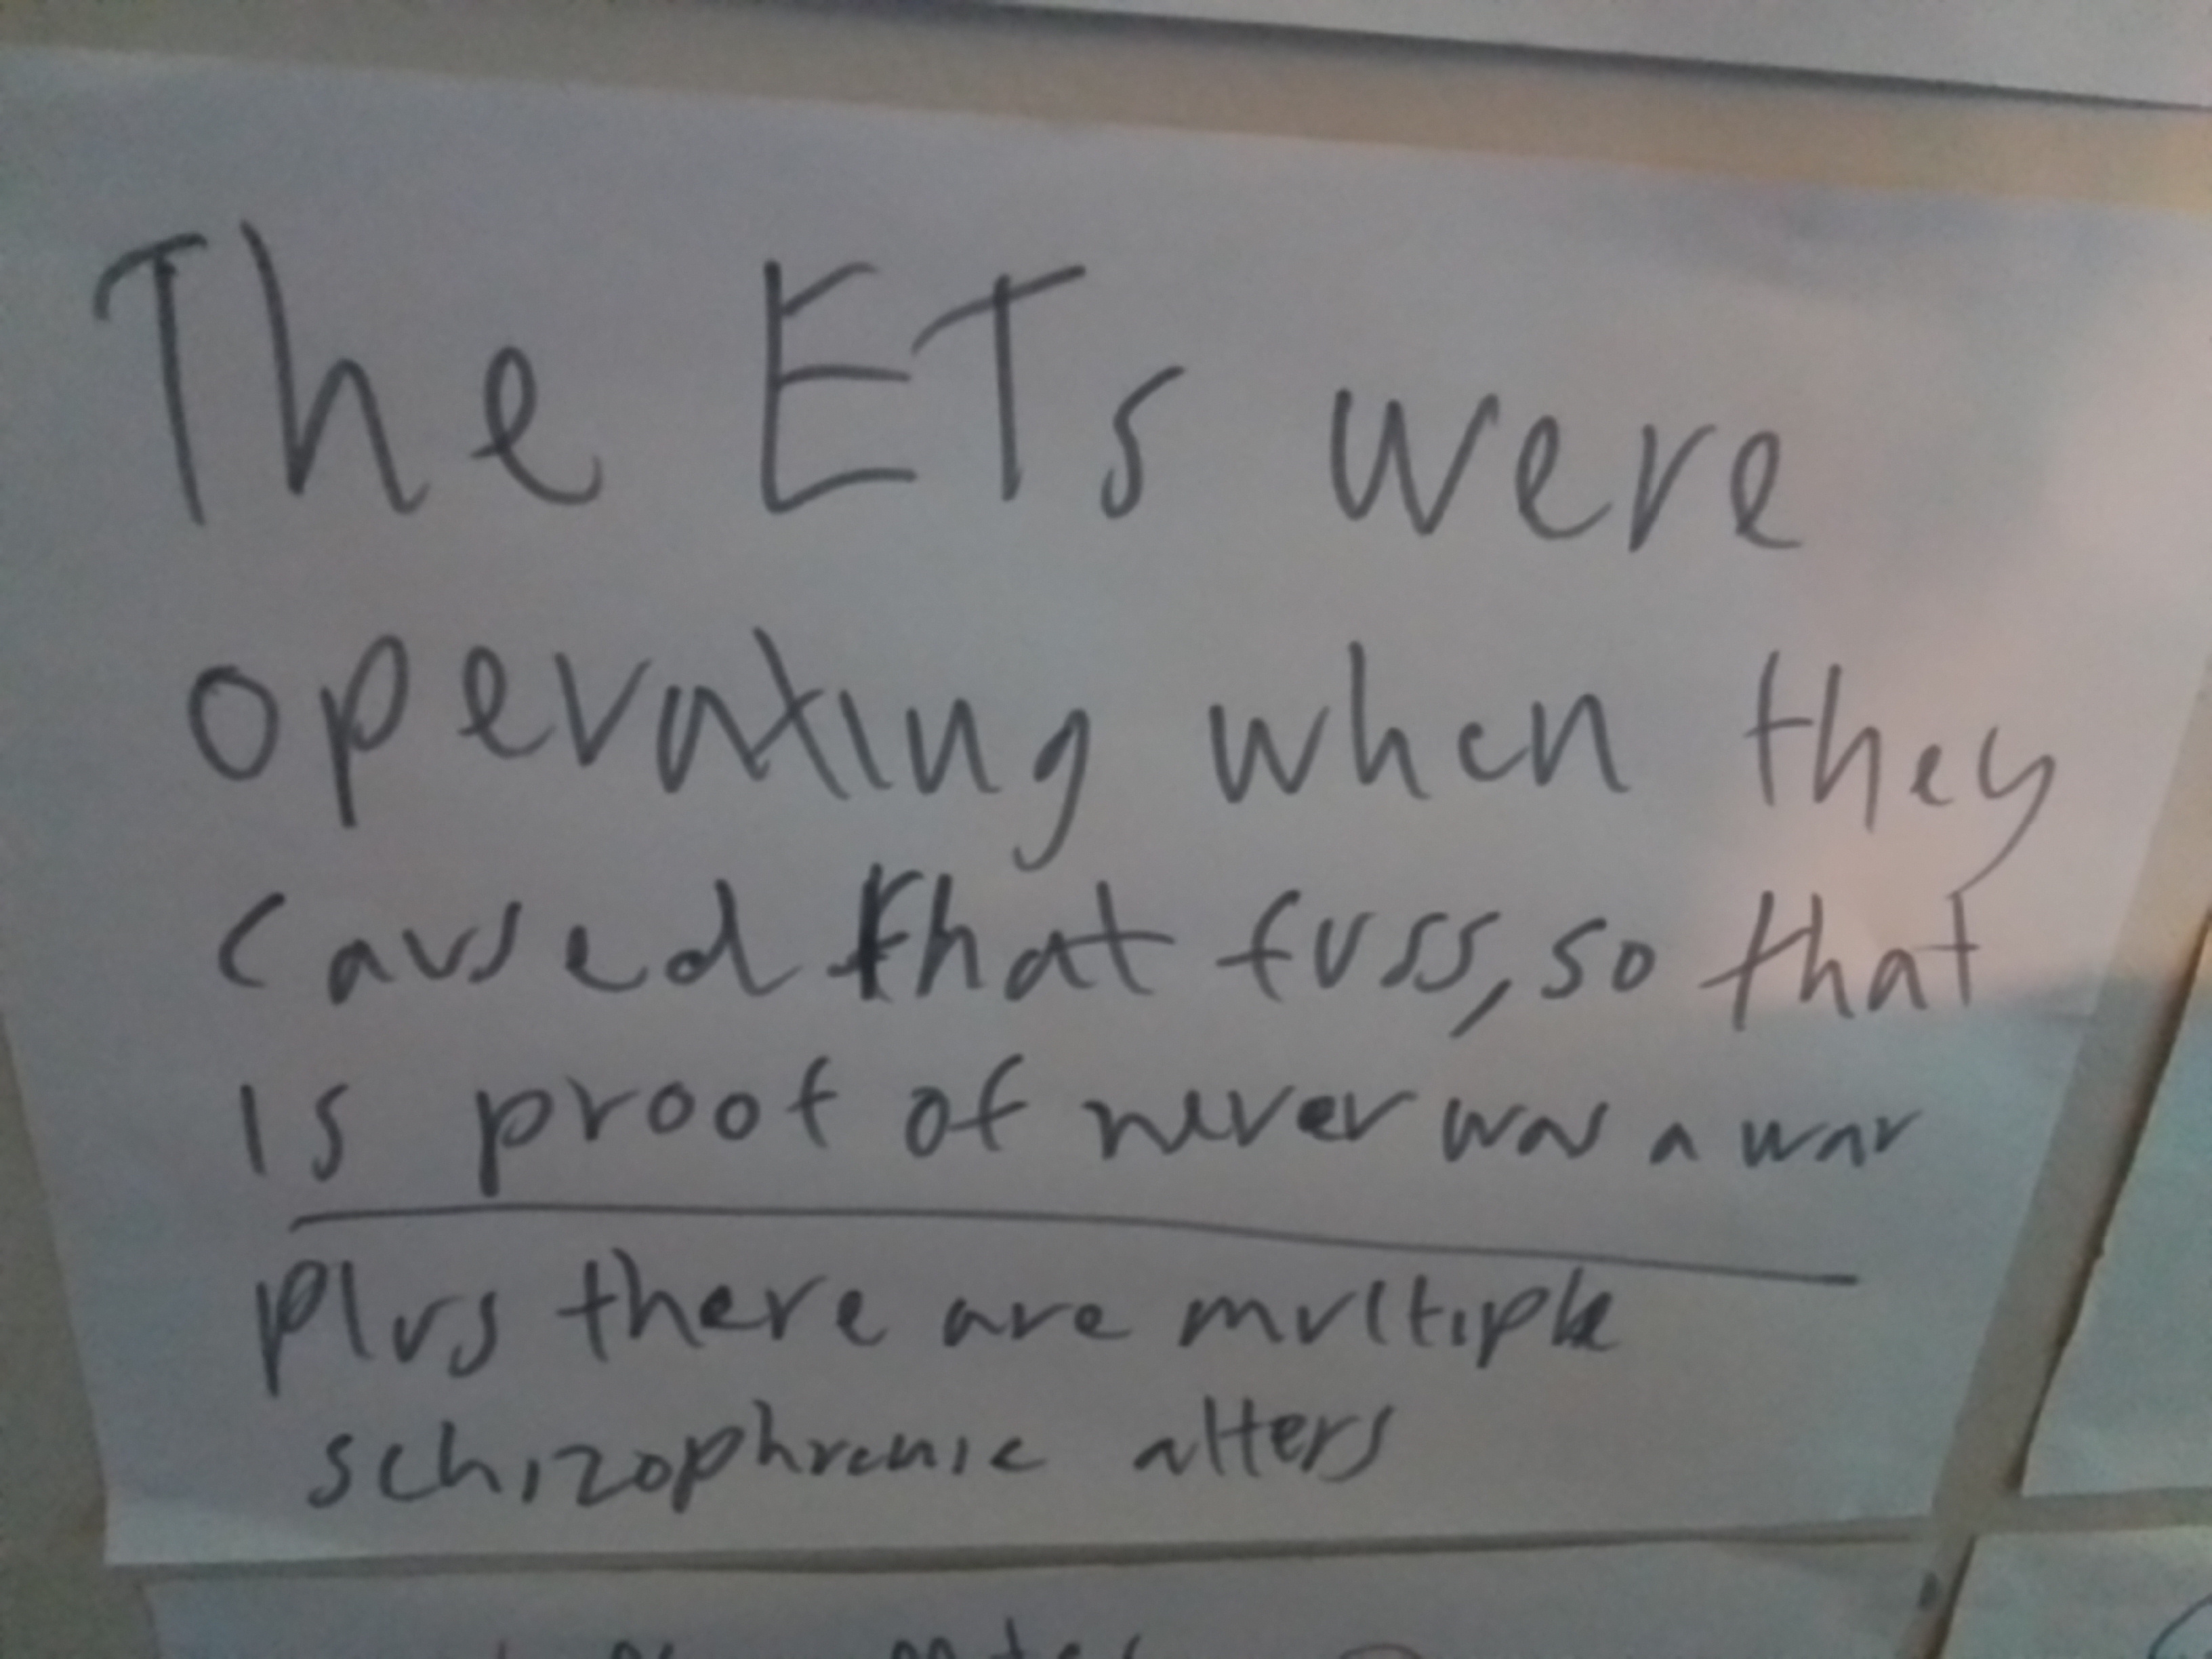 The ETs were
operating when they
caused that fuss, so that
is proof of never was a war
plus there are multiple
schizophrenic alters